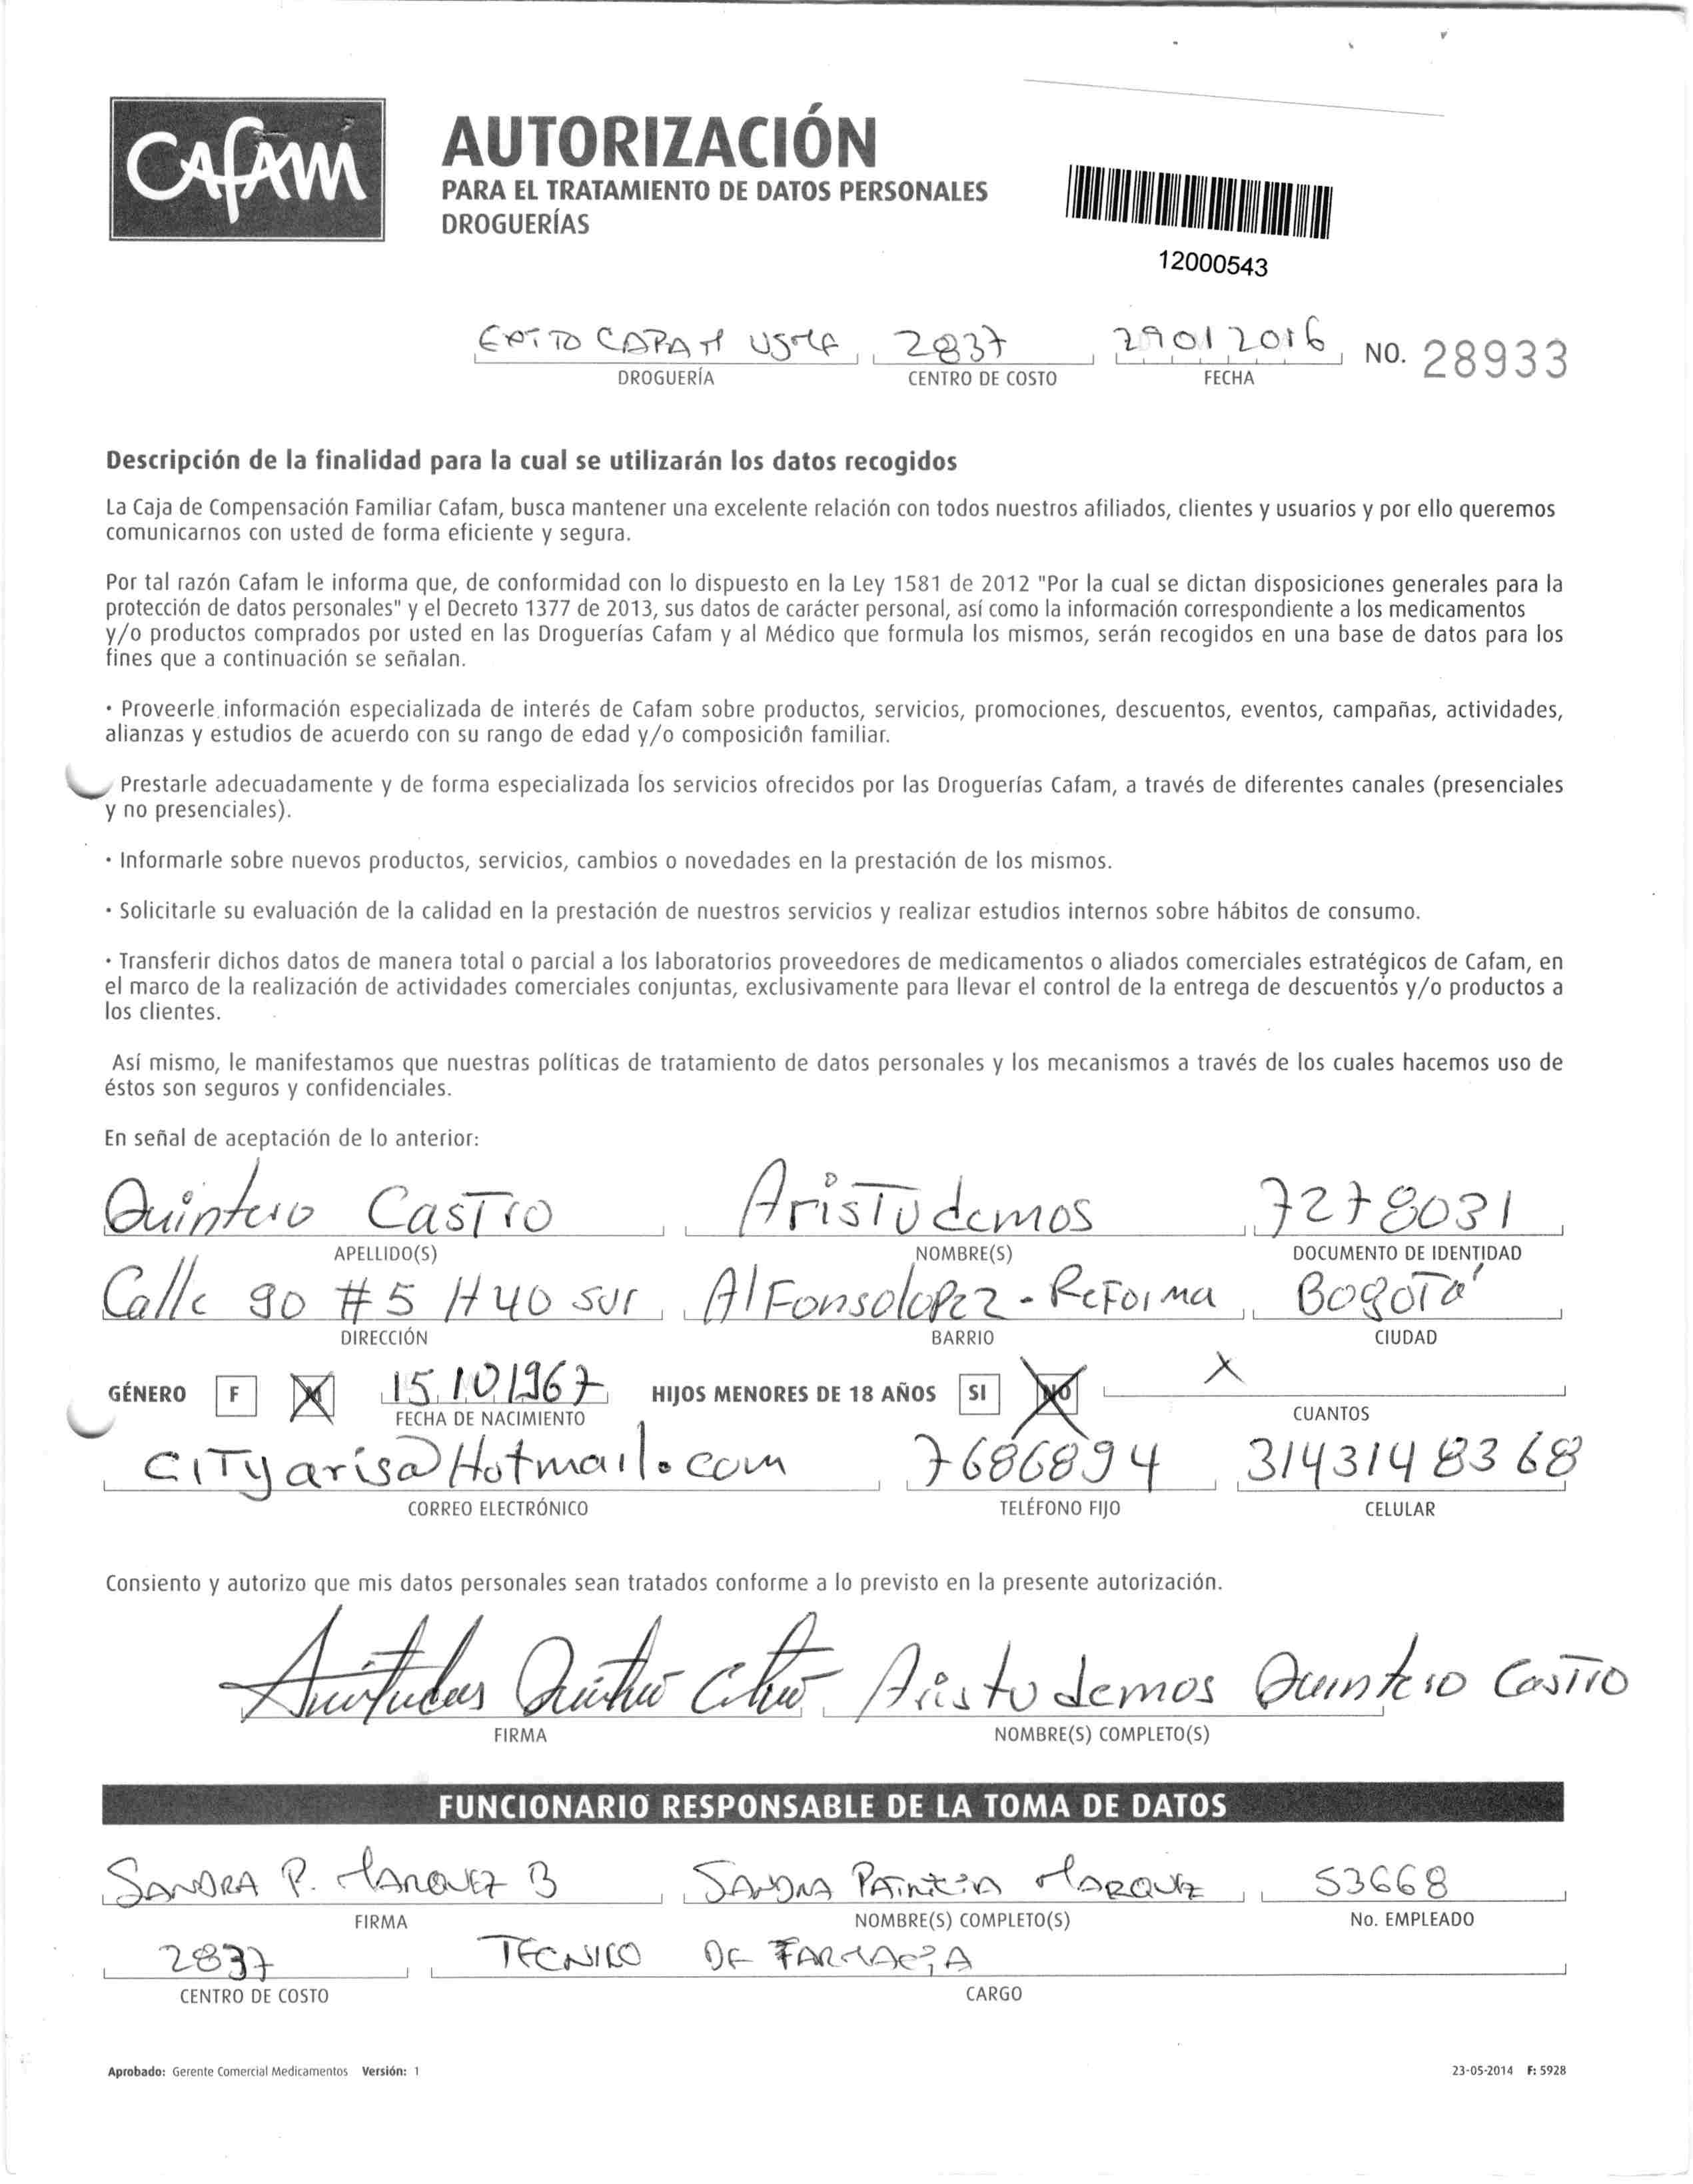 Cafam
AUTORIZACIÓN
PARA EL TRATAMIENTO DE DATOS PERSONALES
DROGUERÍAS
12000543
2837 29012016 NO. 28933
DROGUERÍA CENTRO DE COSTO FECHA
Descripción de la finalidad para la cual se utilizarán los datos recogidos
La Caja de Compensación Familiar Cafam, busca mantener una excelente relación con todos nuestros afiliados, clientes y usuarios y por ello queremos
comunicarnos con usted de forma eficiente y segura.
Por tal razón Cafam le informa que, de conformidad con lo dispuesto en la Ley 1581 de 2012 "Por la cual se dictan disposiciones generales para la
protección de datos personales" y el Decreto 1377 de 2013, sus datos de carácter personal, así como la información correspondiente a los medicamentos
y/o productos comprados por usted en las Droguerías Cafam y al Médico que formula los mismos, serán recogidos en una base de datos para los
fines que a continuación se señalan.
· Proveerle información especializada de interés de Cafam sobre productos, servicios, promociones, descuentos, eventos, campañas, actividades,
alianzas y estudios de acuerdo con su rango de edad y/o composición familiar.
Prestarle adecuadamente y de forma especializada los servicios ofrecidos por las Droguerías Cafam, a través de diferentes canales (presenciales
y no presenciales).
· Informarle sobre nuevos productos, servicios, cambios o novedades en la prestación de los mismos.
· Solicitarle su evaluación de la calidad en la prestación de nuestros servicios y realizar estudios internos sobre hábitos de consumo.
· Transferir dichos datos de manera total o parcial a los laboratorios proveedores de medicamentos o aliados comerciales estratégicos de Cafam, en
el marco de la realización de actividades comerciales conjuntas, exclusivamente para llevar el control de la entrega de descuentos y/o productos a
los clientes.
Así mismo, le manifestamos que nuestras políticas de tratamiento de datos personales y los mecanismos a través de los cuales hacemos uso de
éstos son seguros y confidenciales.
En señal de aceptación de lo anterior:
Quintero Castro Aristudemos 7278031
APELLIDO(S) NOMBRE(S) DOCUMENTO DE IDENTIDAD
Calle 90 # 5 H 40 sur Alfonsolopez - Reforma Bogotá
DIRECCIÓN BARRIO CIUDAD
GÉNERO F M 15 10 1967 HIJOS MENORES DE 18 AÑOS SI NO X
FECHA DE NACIMIENTO CUANTOS
CITyarisa@Hotmail.com 7686894 3143148368
CORREO ELECTRÓNICO TELÉFONO FIJO CELULAR
Consiento y autorizo que mis datos personales sean tratados conforme a lo previsto en la presente autorización.
Aristudemos Quintero Castro
FIRMA NOMBRE(S) COMPLETO(S)
FUNCIONARIO RESPONSABLE DE LA TOMA DE DATOS
SANDRA P. MARQUEZ B SANDRA PATRICIA MARQUEZ 53668
FIRMA NOMBRE(S) COMPLETO(S) No. EMPLEADO
2837 TECNICO DE FARMACIA
CENTRO DE COSTO CARGO
Aprobado: Gerente Comercial Medicamentos Versión: 1 23-05-2014 F: 5928